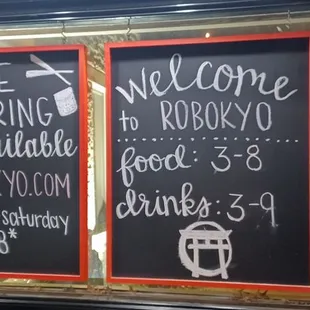 RING
ailable
YO.COM
saturday
8*
Welcome
to ROBOKYO
food: 3-8
drinks: 3-9